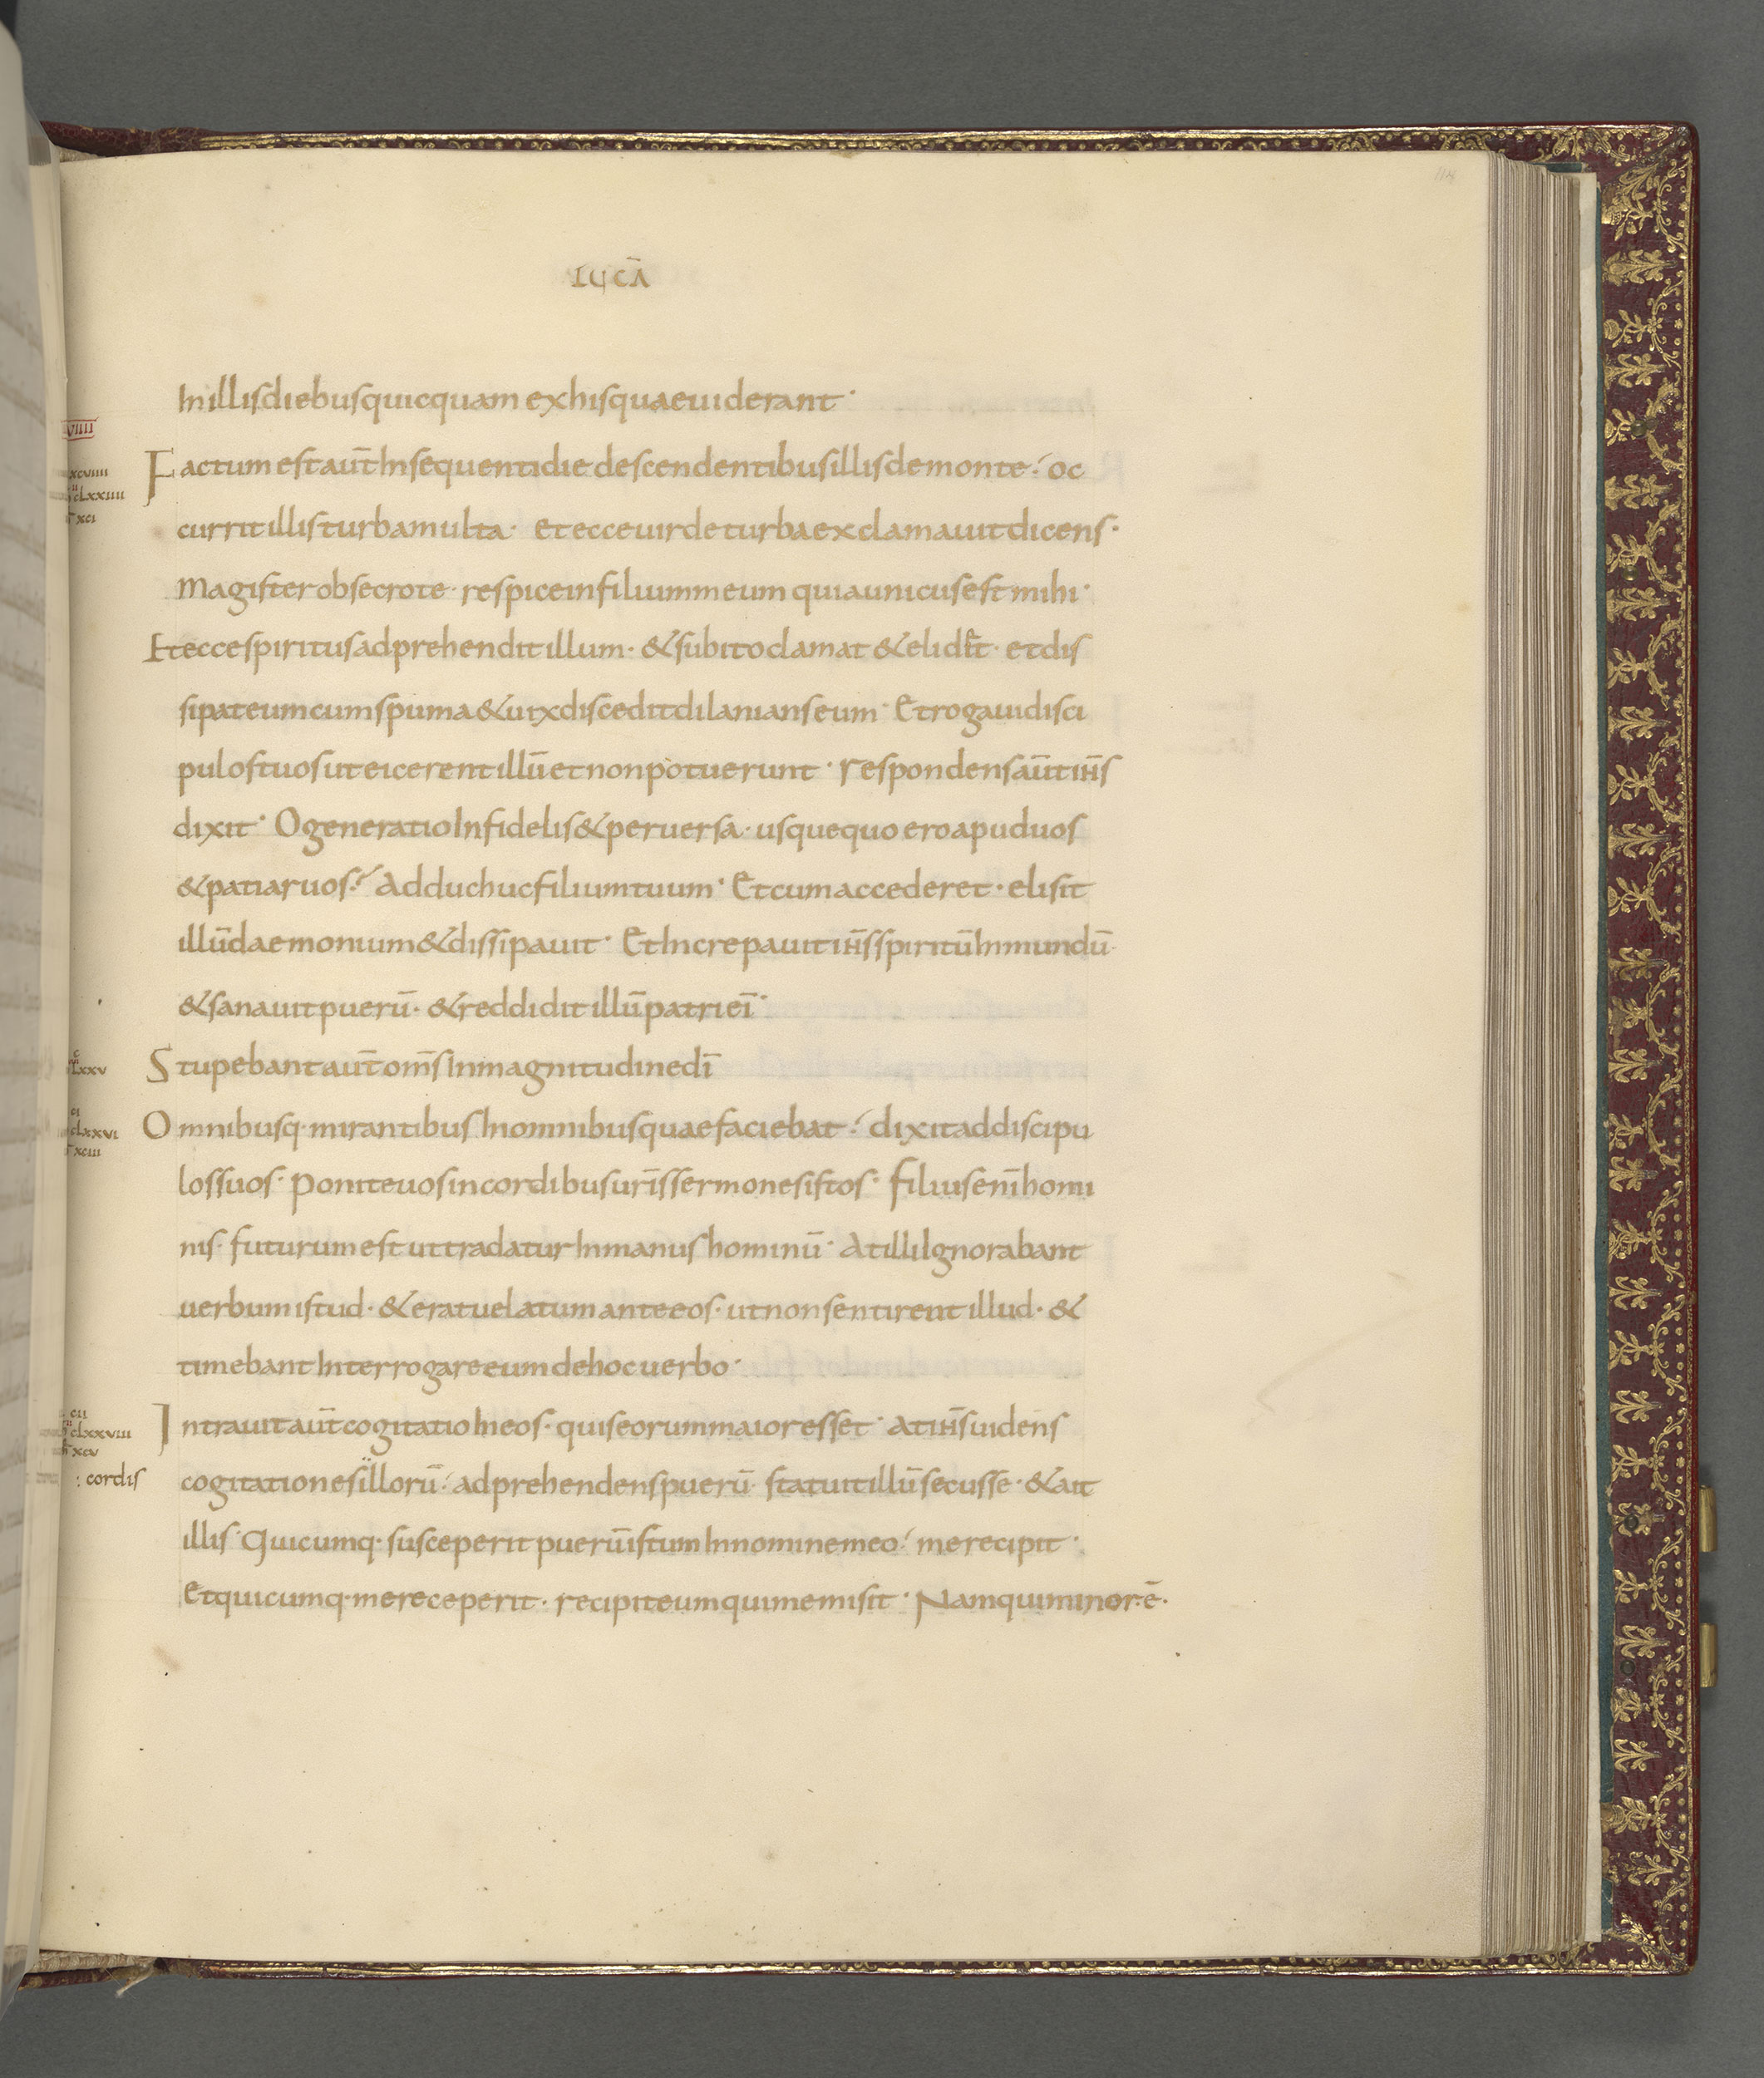 LUCĀ
114
In illis diebus quicquam ex his quae uiderant·
VIIII
Factum est aūt In sequenti die descendentibus illis de monte· oc
xcviiii
clxxiiii
xci
currit illis turba multa· et ecce uir de turba exclamauit dicens·
Magister obsecro te· respice in filium meum quia unicus est mihi·
Et ecce spiritus adprehendit illum· & subito clamat & elidit· et dis
sipat eum cum spuma & uix discedit dilanians eum· Et rogaui disci
pulos tuos ut eicerent illū et non potuerunt· respondens aūt ih̄s
dixit· O generatio Infidelis & peruersa· usquequo ero apud uos
& patiar uos· Adduc huc filium tuum· Et cum accederet· elisit
illū daemonium & dissipauit· Et Increpauit ih̄s spiritū Inmundū·
& sanauit puerū· & reddidit illū patri eī·
c
lxxv
Stupebant aūt om̄s In magnitudine dī
ci
clxxvi
xciii
Omnibusq· mirantibus In omnibus quae faciebat· dixit ad discipu
los suos· Ponite uos in cordibus ur̄is sermones istos· filius enī homi
nis· futurum est ut tradatur In manus hominū· At illi Ignorabant
uerbum istud· & erat uelatum ante eos· ut non sentirent illud· &
timebant Interrogare eum de hoc uerbo·
cii
clxxviii
xcv
Intrauit aūt cogitatio In eos· quis eorum maior esset· At ih̄s uidens
: cordis
cogitationes illorū· adprehendens puerū· statuit illū secus se· & ait
illis· Quicumq· susceperit puerū istum In nomine meo· me recipit·
Et quicumq· me receperit· recipit eum qui me misit· Nam qui minor· ē·